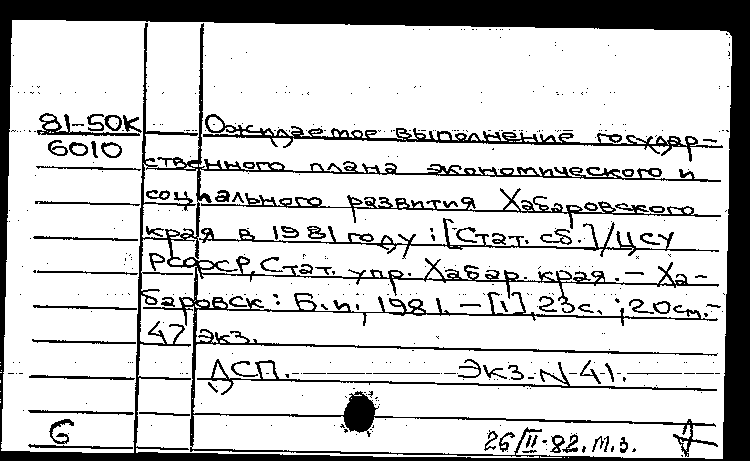 81-50К Ожидаемое выполнение государ-
6010 ственного плана экономического и
социального развития Хабаровского
края в 1981 году : [Стат. сб.] / ЦСУ
РСФСР, Стат. упр. Хабар. края. – Ха-
баровск : Б. и., 1981. – [1], 23 с. ; 20 см. –
47 экз.
ДСП. Экз. N 41.
6 26/II-82. м.з.